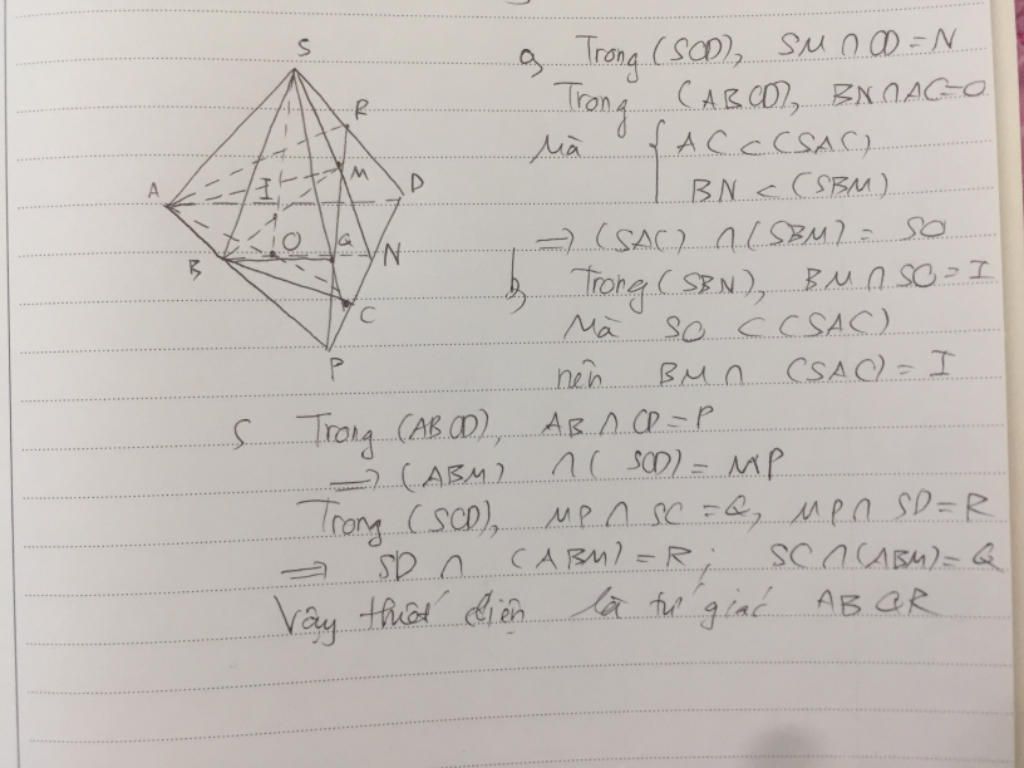 S
R
M
A
I
D
O
Q
N
B
C
P
a, Trong (SCD), SM ∩ CD = N
Trong (ABCD), BN ∩ AC = O
Mà { AC ⊂ (SAC)
BN ⊂ (SBM)
⇒ (SAC) ∩ (SBM) = SO
b, Trong (SBN), BM ∩ SO = I
Mà SO ⊂ (SAC)
nên BM ∩ (SAC) = I
c, Trong (ABCD), AB ∩ CD = P
⇒ (ABM) ∩ (SCD) = MP
Trong (SCD), MP ∩ SC = Q, MP ∩ SD = R
⇒ SD ∩ (ABM) = R; SC ∩ (ABM) = Q
Vậy thiết diện là tứ giác ABQR